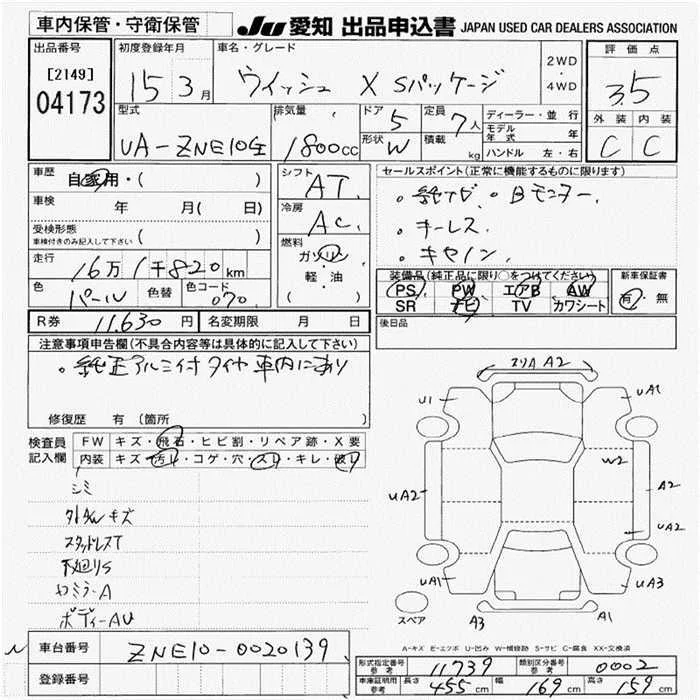 車内保管・守衛保管
JU 愛知 出品申込書 JAPAN USED CAR DEALERS ASSOCIATION
出品番号
[2149]
04173
初度登録年月
15 3月
車名・グレード
ウイッシュ X Sパッケージ
2WD
・
4WD
評価点
3.5
外装 内装
C C
型式
UA-ZNE10G
排気量
1800cc
ドア 5
形状 W
定員 7人
積載 kg
ディーラー・並行
モデル年式 年
ハンドル 左・右
車歴 自家用・( )
車検 年 月( 日)
受検形態
車検付きのみ記入して下さい ( )
走行 16万1千820km
色 パール 色替 色コード 070
R券 11.630円 名変期限 月 日
シフト AT
冷房 AC
燃料
ガソリン
軽・油
( )
セールスポイント(正常に機能するものに限ります)
。純ナビ 。Bモニター
。キーレス
。キャノン
装備品(純正品に限り○をつけてください)
PS PW エアB AW
SR ナビ TV カワシート
新車保証書
有・無
後日品
注意事項申告欄(不具合内容等は具体的に記入して下さい)
。純正アルミ付タイヤ車内にあり
修復歴 有(箇所 )
検査員記入欄
FW キズ・飛石・ヒビ割・リペア跡・X要
内装 キズ・汚レ・コゲ・穴・スレ・キレ・破レ
シミ
キズ
スタッドレスT
下廻りS
ミラーA
ボディーAU
エリA A2
U1
UA1
W2
A2
UA2
UA2
UA1
UA3
A3
A1
スペア
A-キズ E-エクボ U-凹み W-補修跡 S-サビ C-腐食 XX-交換済
車台番号 ZNE10-0020139
登録番号
型式指定番号 参考 11739
類別区分番号 参考 0002
車庫証明用 参考 長さ 455cm 幅 169cm 高さ 159cm